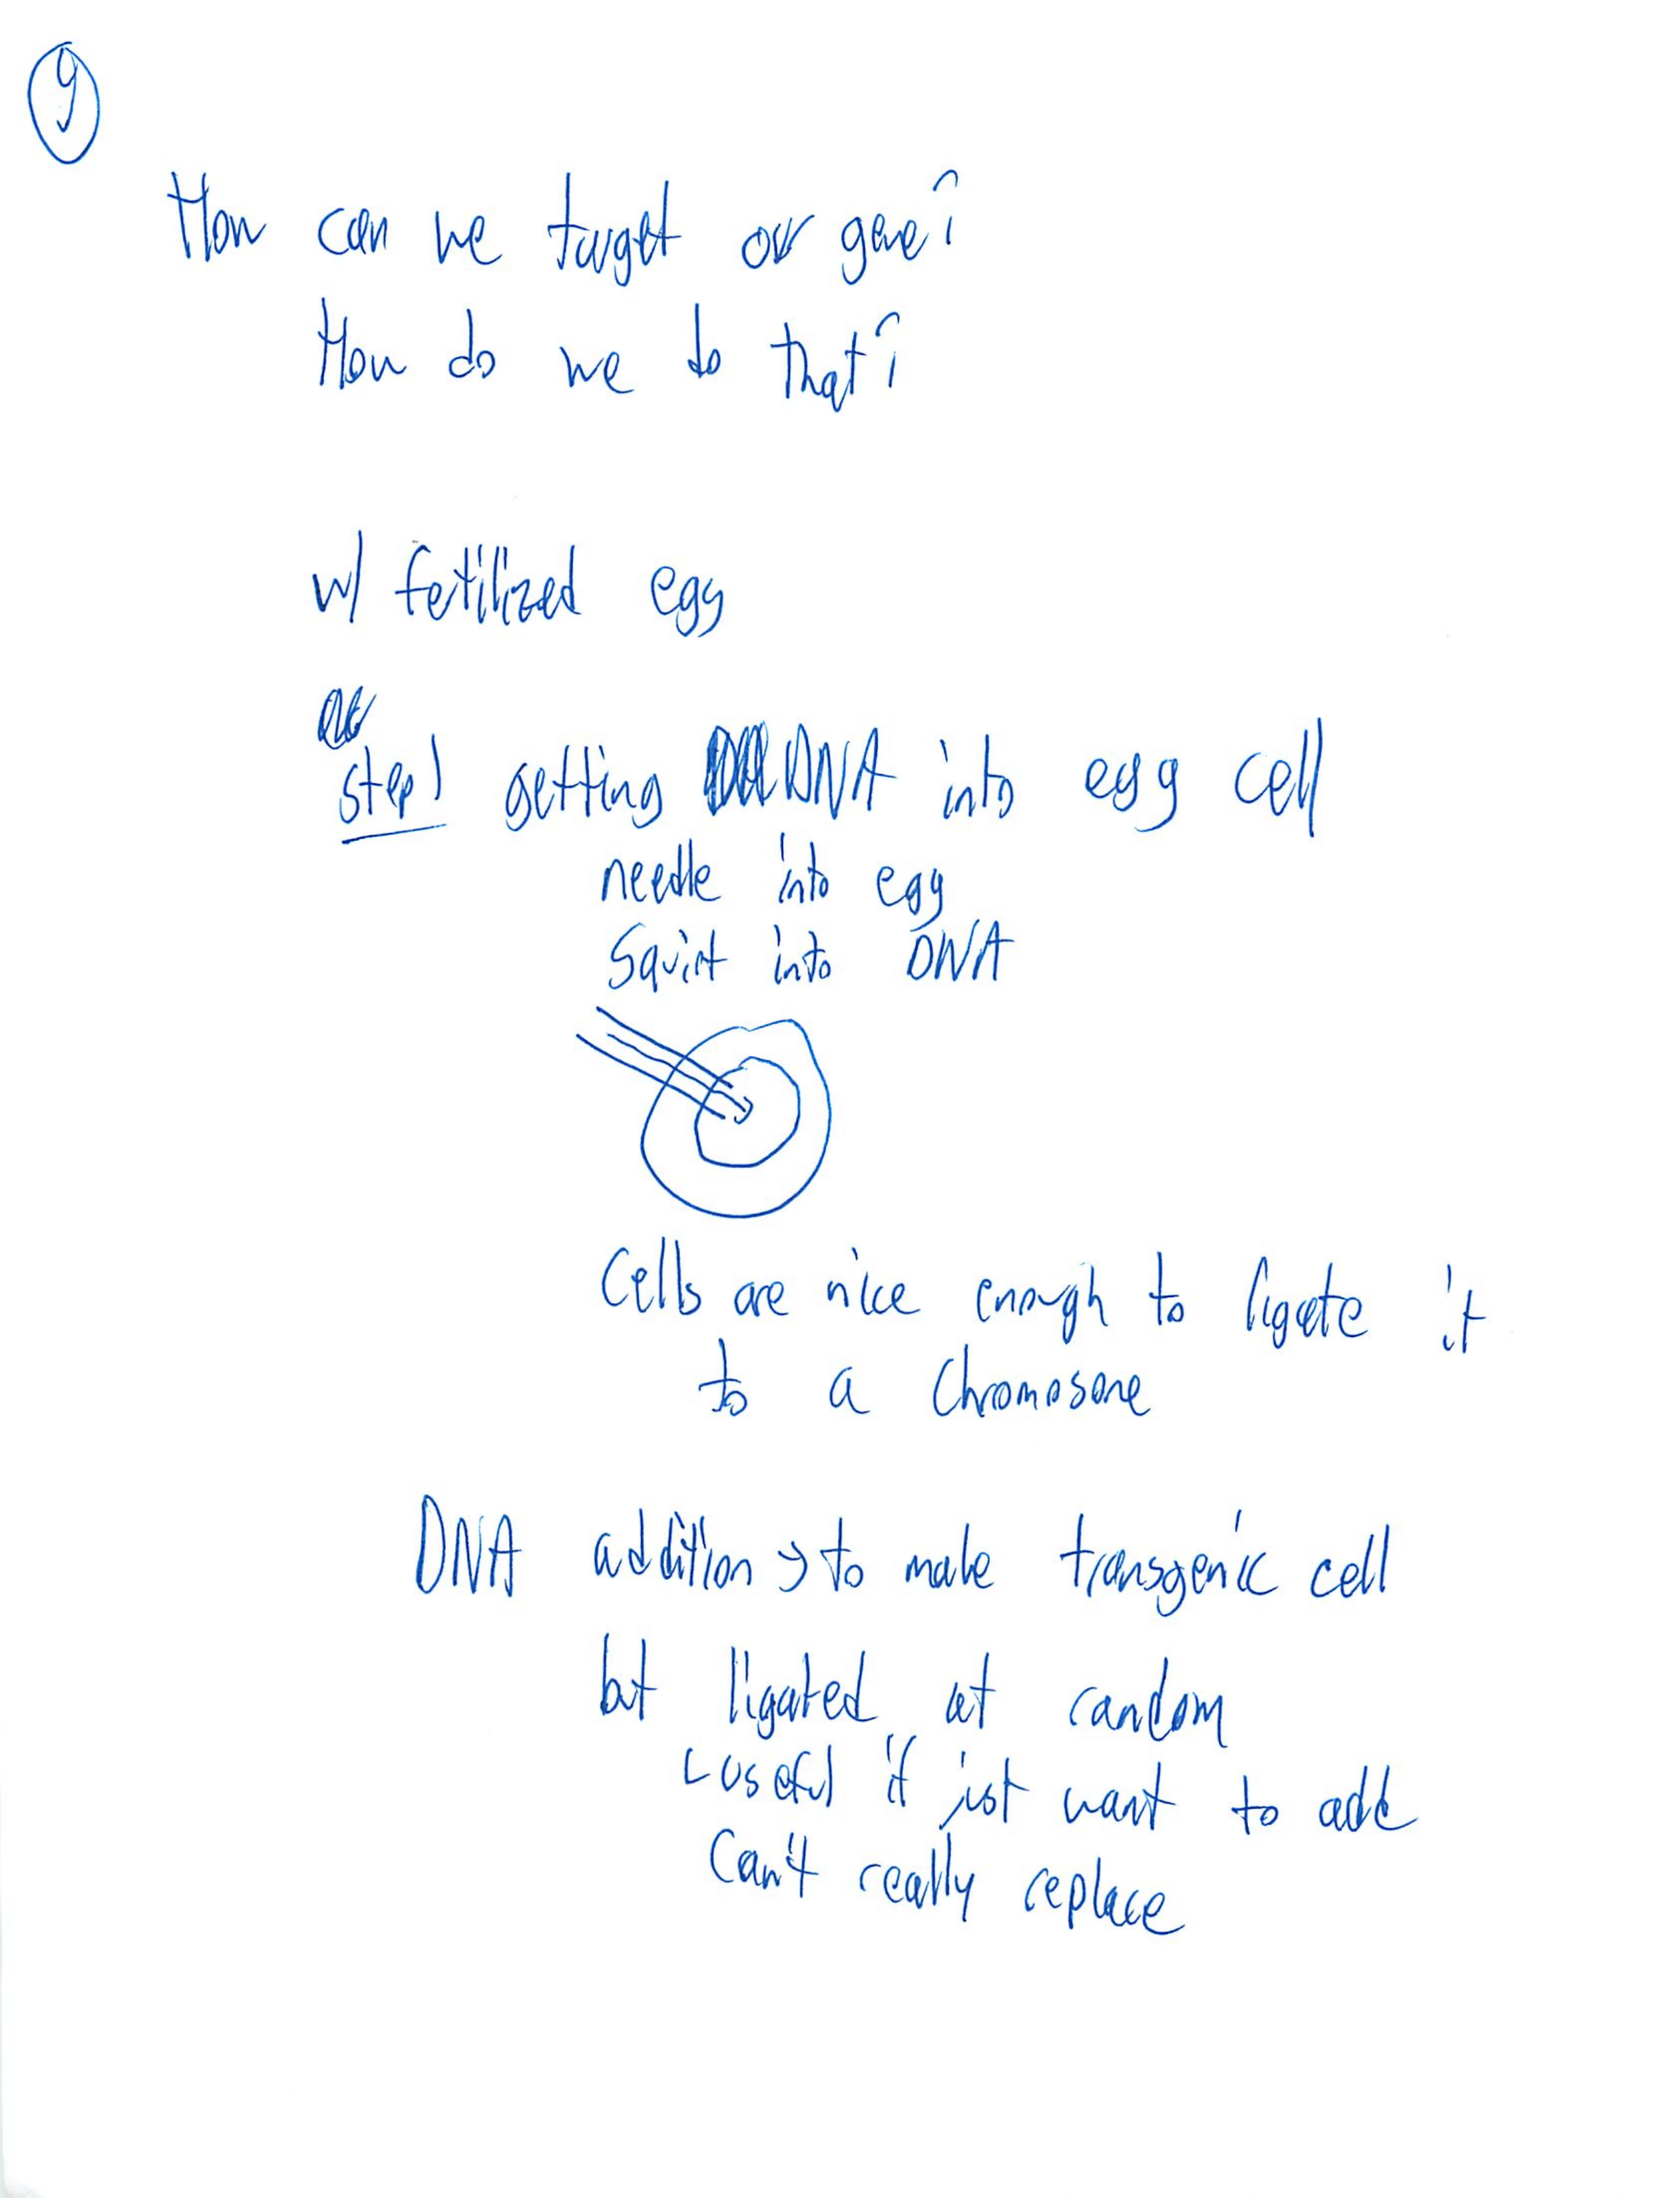 9
How can we target our gene?
How do we do that?
w/ fetilized egg
step 1 getting DNA into egg cell
needle into egg
Squirt into DNA
Cells are nice enough to ligate it
to a chromosone
DNA addition → to make transgenic cell
but ligated at random
useful if just want to add
Can't really replace